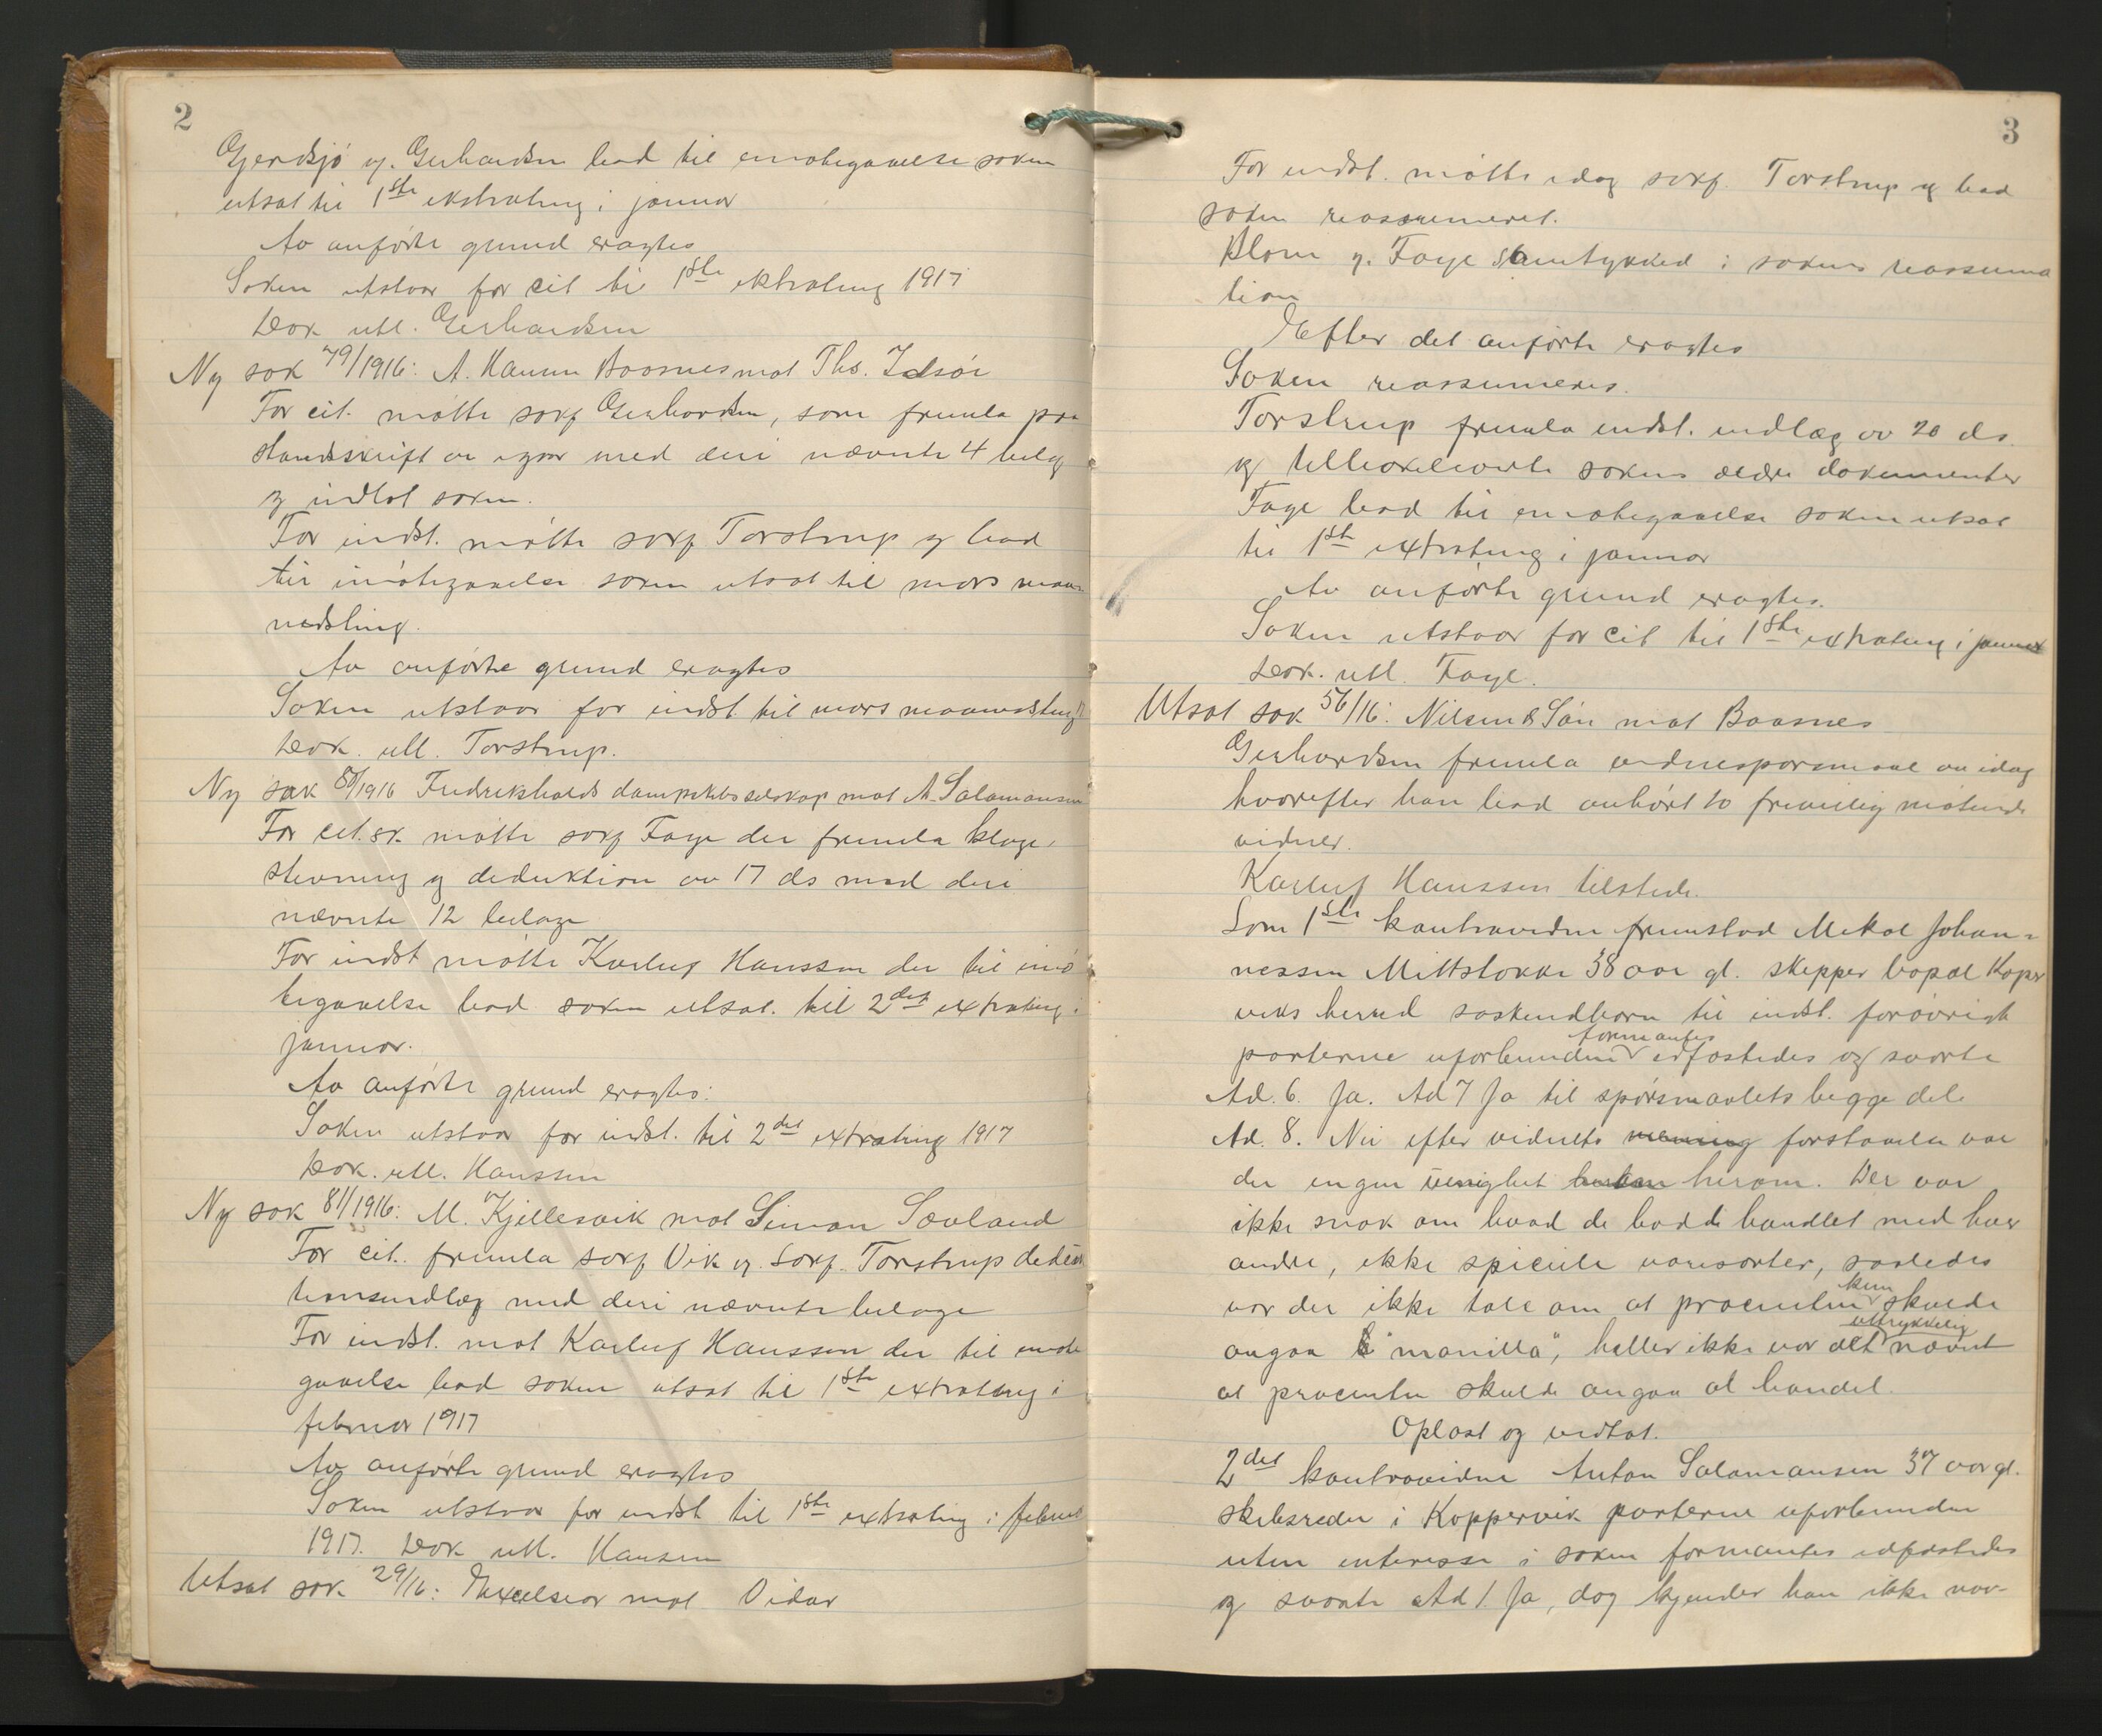 2
Gjerdsjö v. Gerhardsen bad til imøtegaaelse saken
utsat til 1ste ekstrating i januar
Av anførte grund eragtes
Saken utstaar for cit til 1ste ekstrating 1917
Dok utl. Gerhardsen
Ny sak 79/1916: A. Hamm Baasnes mot Ths. Idsöe
For cit. møtte sakf Gerhardsen, som fremla paa
standsskrift av igaar med deri nævnte 4 bilag
og indlot saken.
For indst. møtte sakf Torstrup og bad
til imøtegaaelse saken utsat til mars maa-
nedsting.
Av anførte grund eragtes
Saken utstaar for indst. til mars maanedsting
Dok. utl. Torstrup.
Ny sak 80/1916 Fredrikshalds dampskibsselskap mot A. Salamonsen
For cit.sk. møtte sakf Faye der fremla klage,
stevning og deduktion av 17 ds med deri
nævnte 12 bilage
For indst møtte Karluf Hanssen der til imø
tegaaelse bad saken utsat. til 2det extrating i
januar.
Av anførte grund eragtes:
Saken utstaar for indst. til 2det extrating 1917
Dok. utl. Hanssen
Ny sak 81/1916: M. Kjellesvik mot Simon Sævland
For cit. fremla sakf Vik v. sakf. Torstrup deduk
tionsindlæg med deri nævnte bilage
For indst. mot Karluf Hanssen der til imøte
gaaelse bad saken utsat til 1ste extrating i
februar 1917
Av anførte grund eragtes
Saken utstaar for indst til 1ste extrating i februar
1917. Dok utl. Hansen
Utsat sak 29/16: Excelsior mot Vidar
3
For indst. møtte idag sakf. Torstrup og bad
saken reassumeret.
Blom v. Faye samtykked i sakens reassuma
tion
Efter det anførte eragtes
Saken reassumeres.
Torstrup fremla indst. indlæg av 20 ds.
og tilbakeleverte sakens ældre dokumenter
Faye bad til imøtegaaelse saken utsat
til 1ste extrating i januar
Av anførte grund eragtes.
Saken utstaar for cit til 1ste extrating i januar
Dok. utl. Faye.
Utsat sak 56/16: Nilsen & Søn mot Baasnes
Gerhardsen fremla vidnespørsmaal av idag
hvorefter han bad anhørt to frivillig møtende
vidner.
Karluf Hanssen tilstede.
Som 1ste kontravidne fremstod Mikal Johan-
nessen Mittstokke 38 aar gl. skipper bopæl Koper
viks herred søskendbarn til indst. forøvrigt
parterne uforbunden formantes edfæstedes og svarte
Ad. 6. Ja. Ad 7 Ja til spørsmaalets begge dele
Ad. 8. Nei efter vidnets mening forstaaelse var
der ingen uenighet herom. Der var
ikke snak om hvad de hadde handlet med hver
andre, ikke spicielle varesorter, saaledes
var der ikke tale om at procenten kun skulde
angaa "manilla", heller ikke var det uttrykkelig nævnt
at procenten skulde angaa al handel.
Oplæst og vedtat.
2det kontravidne Anton Salamonsen 37 aar gl.
skibsreder i Koppervik parterne uforbunden
uten interesse i saken formantes edfæstedes
og svarte Ad 1. Ja, dog kjender han ikke nav-